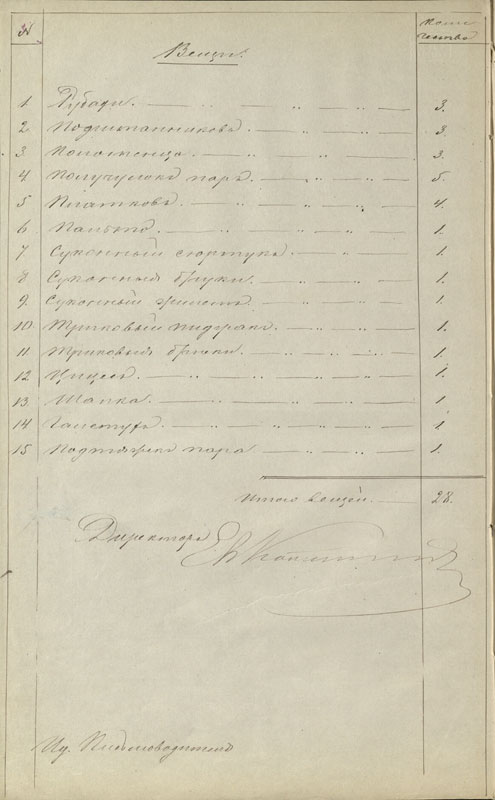 № Вещи. Коли-
чество
1 Рубахи. 3.
2. Подштанниковъ. 3.
3. Полотенцо. 3.
4. Получулокъ паръ. 5.
5 Платковъ. 4.
6 Пальто. 1.
7 Суконный сюртукъ. 1.
8 Суконныя брюки. 1.
9. Суконный жилетъ. 1.
10 Триковый пиджакъ. 1.
11. Триковыя брюки. 1.
12 1.
13. Шапка. 1
14 Галстухъ. 1
15 Подтяжекъ пара 1.
Итого вещей. 28.
Директоръ
Ид. Письмоводителя